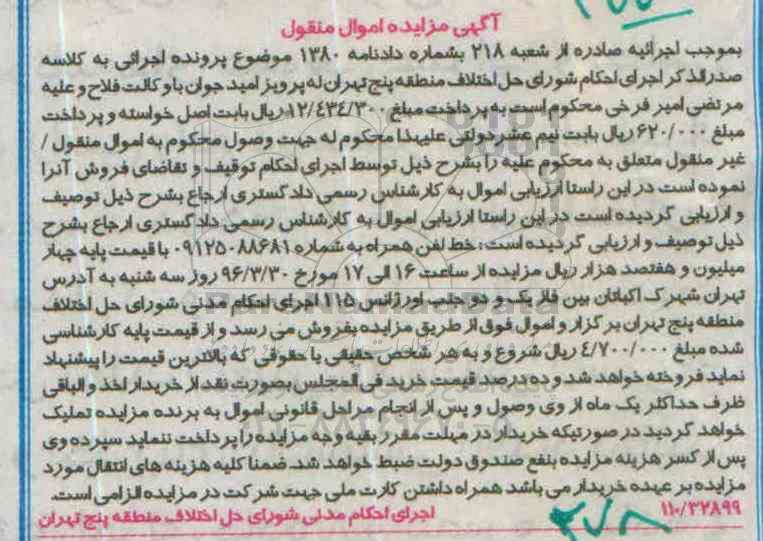 آگهی مزایده اموال منقول
بموجب اجرائیه صادره از شعبه ۲۱۸ بشماره دادنامه ۱۳۸۰ موضوع پرونده اجرائی به کلاسه
صدرالذکر اجرای احکام شورای حل اختلاف منطقه پنج تهران له پرویز امید جوان با وکالت فلاح و علیه
مرتضی امیر فرخی محکوم است به پرداخت مبلغ ۱۲/۴۳۴/۳۰۰ ریال بابت اصل خواسته و پرداخت
مبلغ ۶۲۰/۰۰۰ ریال بابت نیم عشر دولتی علیهذا محکوم له جهت وصول محکوم به اموال منقول /
غیر منقول متعلق به محکوم علیه را بشرح ذیل توسط اجرای احکام توقیف و تقاضای فروش آنرا
نموده است در این راستا ارزیابی اموال به کارشناس رسمی دادگستری ارجاع بشرح ذیل توصیف
و ارزیابی گردیده است در این راستا ارزیابی اموال به کارشناس رسمی دادگستری ارجاع بشرح
ذیل توصیف و ارزیابی گردیده است: خط لفن همراه به شماره ۰۹۱۲۵۰۸۸۶۸۱ با قیمت پایه چهار
میلیون و هفتصد هزار ریال مزایده از ساعت ۱۶ الی ۱۷ مورخ ۹۶/۳/۳۰ روز سه شنبه به آدرس
تهران شهرک اکباتان بین فاز یک و دو جنب اورژانس ۱۱۵ اجرای احکام مدنی شورای حل اختلاف
منطقه پنج تهران برگزار و اموال فوق از طریق مزایده بفروش می رسد و از قیمت پایه کارشناسی
شده مبلغ ۴/۷۰۰/۰۰۰ ریال شروع و به هر شخص حقیقی یا حقوقی که بالاترین قیمت را پیشنهاد
نماید فروخته خواهد شد و ده درصد قیمت خرید فی المجلس بصورت نقد از خریدار اخذ و الباقی
ظرف حداکثر یک ماه از وی وصول و پس از انجام مراحل قانونی اموال به برنده مزایده تملیک
خواهد گردید در صورتیکه خریدار در مهلت مقرر بقیه وجه مزایده را پرداخت ننماید سپرده وی
پس از کسر هزینه مزایده بنفع صندوق دولت ضبط خواهد شد. ضمنا کلیه هزینه های انتقال مورد
مزایده بر عهده خریدار می باشد همراه داشتن کارت ملی جهت شرکت در مزایده الزامی است.
۱۱۰/۳۲۸۹۹ اجرای احکام مدنی شورای حل اختلاف منطقه پنج تهران